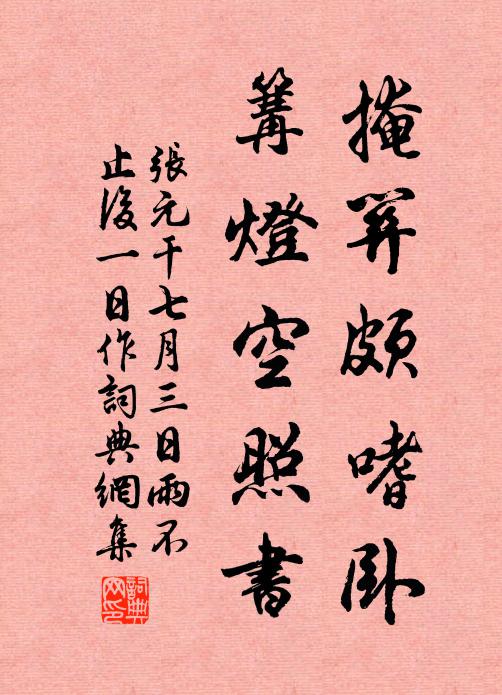 掩關頗嗜卧
篝燈空照書
張元干七月三日雨不
止後一日作詞典網集
詞典網印